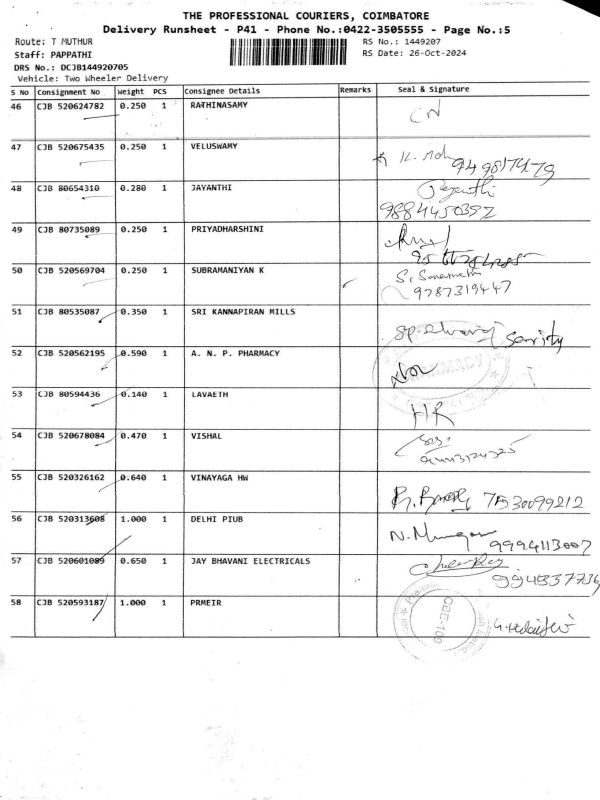 THE PROFESSIONAL COURIERS, COIMBATORE
Delivery Runsheet - P41 - Phone No.:0422-3505555 - Page No.:5
Route: T MUTHUR
RS No.: 1449207
Staff: PAPPATHI
RS Date: 26-Oct-2024
DRS No.: DCJB144920705
Vehicle: Two Wheeler Delivery
S No Consignment No Weight PCS Consignee Details Remarks Seal & Signature
46 CJB 520624782 0.250 1 RATHINASAMY
47 CJB 520675435 0.250 1 VELUSWAMY
48 CJB 80654310 0.280 1 JAYANTHI Jayanthi
9884450392
49 CJB 80735089 0.250 1 PRIYADHARSHINI
50 CJB 520569704 0.250 1 SUBRAMANIYAN K
9787319447
51 CJB 80535087 0.350 1 SRI KANNAPIRAN MILLS
52 CJB 520562195 0.590 1 A. N. P. PHARMACY PHARMACY
53 CJB 80594436 0.140 1 LAVAETH HR
54 CJB 520678084 0.470 1 VISHAL
55 CJB 520326162 0.640 1 VINAYAGA HW 7530099212
56 CJB 520313608 1.000 1 DELHI PIUB 9994113007
57 CJB 520601089 0.650 1 JAY BHAVANI ELECTRICALS
58 CJB 520593187 1.000 1 PRMEIR CBE-109